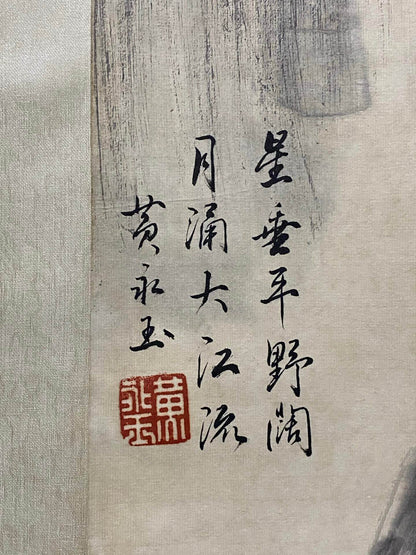 星垂平野闊
月涌大江流
黄永玉
黄永玉